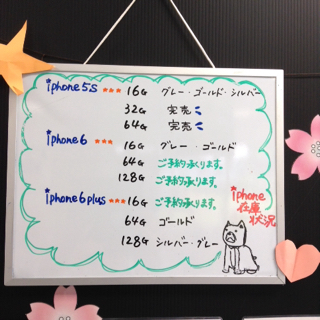 iphone5s *** 16G グレー・ゴールド・シルバー
32G 完売
64G 完売
iphone6 *** 16G グレー・ゴールド
64G ご予約承ります。
128G ご予約承ります。
iphone6plus *** 16G ご予約承ります。
64G ゴールド
128G シルバー・グレー
iphone
在庫
状況